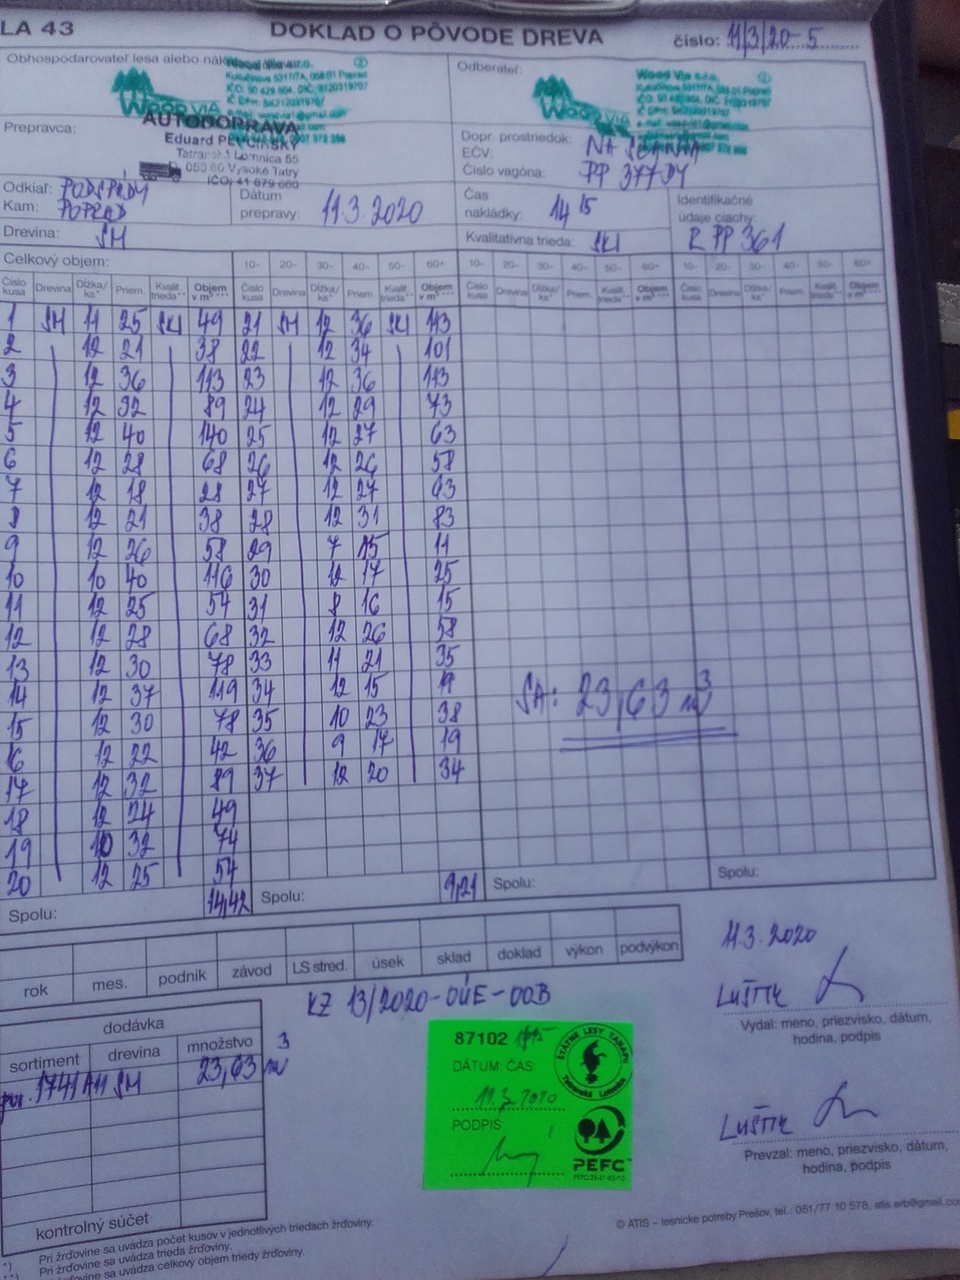 LA 43 DOKLAD O PÔVODE DREVA číslo: 11/3/20-5
Obhospodarovateľ lesa alebo
Odberateľ: Wood Via s.r.o.
WOOD VIA WOOD VIA
Prepravca: AUTODOPRAVA
Eduard
Tatranská Lomnica 55
059 60 Vysoké Tatry
IČO: 41 879 660
Dopr. prostriedok: NA SCANIA
EČV:
Číslo vagóna: PP 377DY
Odkiaľ: PODSPÁDY
Kam: POPRAD
Dátum prepravy: 11.3.2020
Čas nakládky: 14 15
Identifikačné údaje ciachy: R PP 361
Drevina: SM
Kvalitatívna trieda: SKI
Celkový objem: 10- 20- 30- 40- 50- 60+ 10- 20- 30- 40- 50- 60+ 10- 20- 30- 40- 50- 60+
Číslo kusa Drevina Dĺžka/ks* Priem. Kvalit. trieda** Objem v m³*** Číslo kusa Drevina Dĺžka/ks* Priem. Kvalit. trieda** Objem v m³*** Číslo kusa Drevina Dĺžka/ks* Priem. Kvalit. trieda** Objem v m³*** Číslo kusa Drevina Dĺžka/ks* Priem. Kvalit. trieda** Objem v m³***
1 SM 11 25 SKI 49 21 SM 12 36 SKI 113
2 12 21 38 22 12 34 101
3 12 36 113 23 12 36 113
4 12 32 89 24 12 29 73
5 12 40 140 25 12 27 63
6 12 28 68 26 12 26 58
7 12 18 28 27 12 27 63
8 12 21 38 28 12 31 83
9 12 26 58 29 7 15 11
10 10 40 116 30 12 17 25
11 12 25 54 31 8 16 15
12 12 28 68 32 12 26 58
13 12 30 78 33 11 21 35
14 12 37 119 34 12 15 19
15 12 30 78 35 10 23 38
16 12 22 42 36 9 17 19
17 12 32 89 37 12 20 34
18 12 24 49
19 10 32 74
20 12 25 54
SA: 23,63 m³
Spolu: 14,42 Spolu: 9,21 Spolu: Spolu:
rok mes. podnik závod LS stred. úsek sklad doklad výkon podvýkon
KZ 13/2020-OÚE-OOB
11.3.2020
LUŠTIK
Vydal: meno, priezvisko, dátum, hodina, podpis
dodávka
sortiment drevina množstvo
1741A11 SM 23,63 m³
kontrolný súčet
87102
ŠTÁTNE LESY TANAPU
Tatranská Lomnica
DÁTUM, ČAS:
11.3.2020
PODPIS
PEFC
LUŠTIK
Prevzal: meno, priezvisko, dátum, hodina, podpis
*) Pri žrďovine sa uvádza počet kusov v jednotlivých triedach žrďoviny.
Pri žrďovine sa uvádza trieda žrďoviny.
žrďovine sa uvádza celkový objem triedy žrďoviny.
© ATIS – lesnícke potreby Prešov, tel.: 051/77 10 578, atis.erb@gmail.com